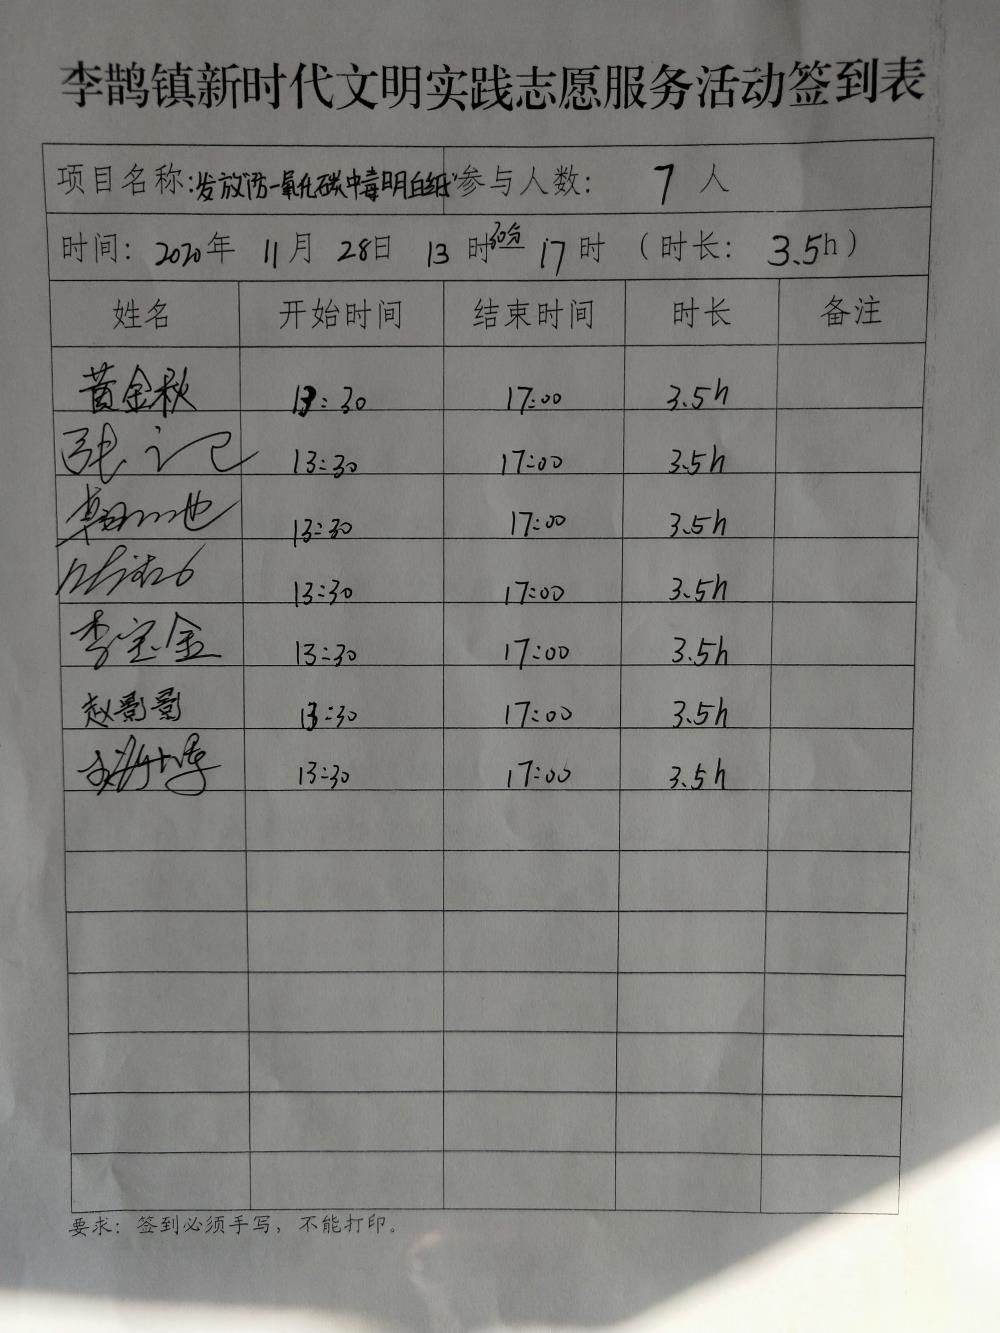 李鹊镇新时代文明实践志愿服务活动签到表
项目名称：发放“防一氧化碳中毒明白纸” 参与人数： 7 人
时间： 2020年 11月 28日 13 时30分 17 时 （时长： 3.5h）
姓名 开始时间 结束时间 时长 备注
黄金秋 13:30 17:00 3.5h
张 13:30 17:00 3.5h
13:30 17:00 3.5h
13:30 17:00 3.5h
李宝金 13:30 17:00 3.5h
赵影影 13:30 17:00 3.5h
13:30 17:00 3.5h
要求：签到必须手写，不能打印。